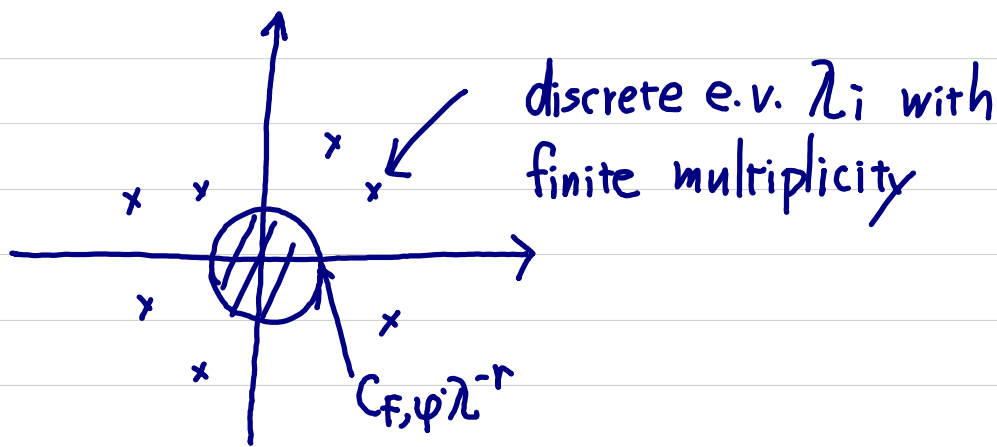 discrete e.v. λi with
finite multiplicity
C_{F,φ}·λ^{-r}